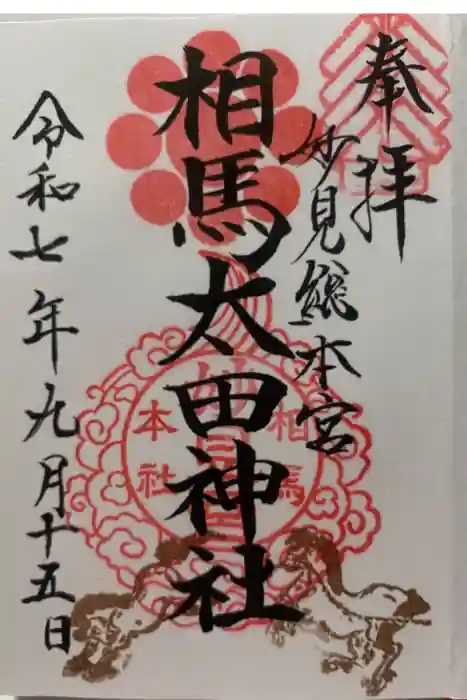 奉拝
妙見総本宮
相馬太田神社
令和七年九月十五日
相馬
妙見宮
本社